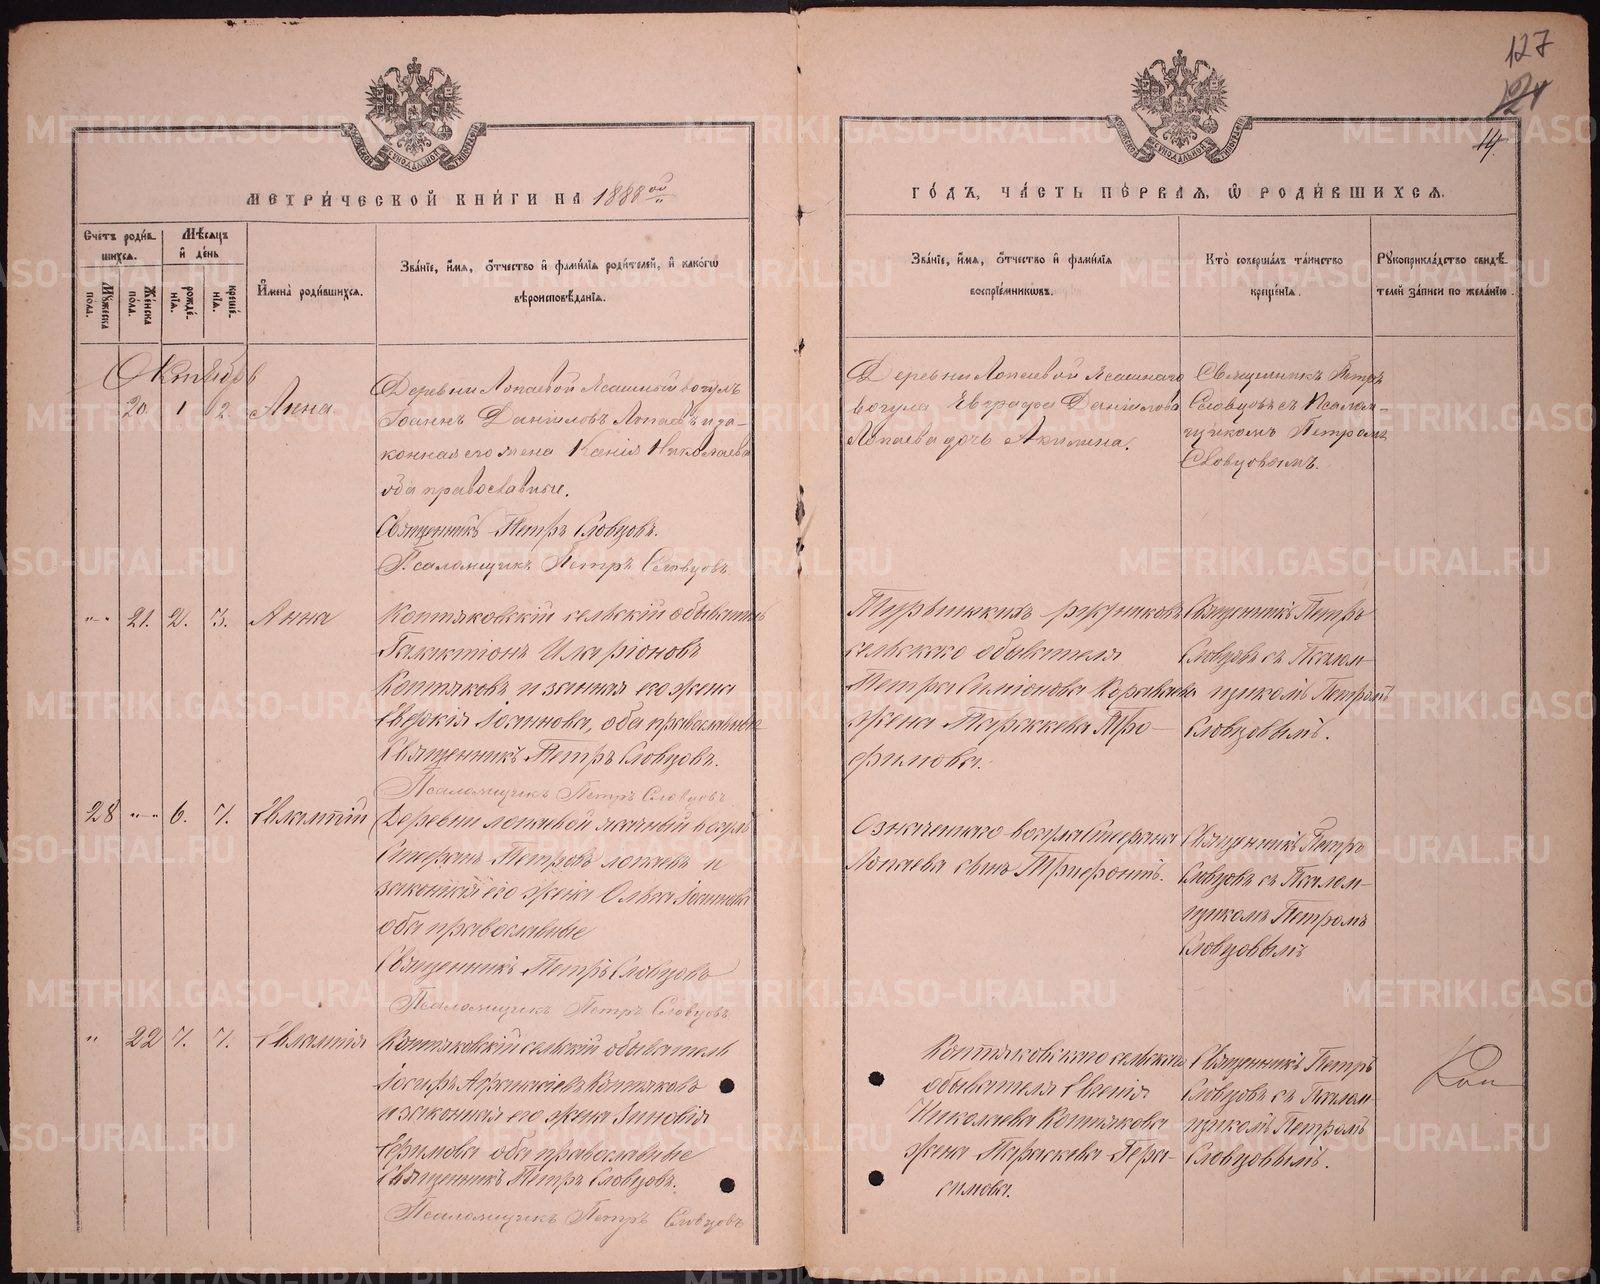 127
14.
МЕТРИ́ЧЕСКОЙ КНИ́ГИ НА 1888ой
ГО́ДЪ, ЧА́СТЬ ПЕ́РВАЯ, Ѡ҆ РОДИ́ВШИХСЯ.
Сче́тъ роди́в-
шихся.
Му́жеска пола.
Же́нска пола.
Мѣ́сяцъ
и҆ де́нь
рожде́нїя.
креще́нїя.
И҆мена̀ роди́вшихся.
Зва́нїе, и҆́мя, ѻ҆́тчество и҆ фами́лїя роди́телей, и҆ како́гѡ
вѣроисповѣ́данїя.
Зва́нїе, и҆́мя, ѻ҆́тчество и҆ фами́лїя
воспрїе́мниковъ.
Кто̀ соверша́лъ та́инство
креще́нїя.
Рꙋкоприкла́дство свидѣ́-
телей за́писи по жела́нїю.
Октябрь
20. 1 2. Анна
Деревни Лопаевой Ясашный вогулъ
Іоаннъ Даніиловъ Лопаевъ и за-
конная его жена Ксенія Николаева
оба православные.
Священникъ Петръ Словцовъ.
Псаломщикъ Петръ Словцовъ
Деревни Лопаевой Ясашнаго
вогула Евграфа Даніилова
Лопаева дочь Акилина.
Священникъ Петръ
Словцовъ съ Псалом-
щикомъ Петромъ
Словцовымъ.
"-" 21. 2. 3. Анна
Коптяковскій сельскій обыватель
Галактіонъ Иларіоновъ
Коптяковъ и законная его жена
Евдокія Іоаннова, оба православные
Священникъ Петръ Словцовъ.
Псаломщикъ Петръ Словцовъ
Турьинскихъ рудниковъ
сельскаго обывателя
Петра Симіонова
жена Параскева Тро-
фимова.
Священникъ Петръ
Словцовъ съ Псалом-
щикомъ Петромъ
Словцовымъ.
28 "-" 6. 7. Евлампій
Деревни Лопаевой ясачный вогулъ
Стефанъ Петровъ Лопаевъ и
законная его жена Ольга Іоаннова
оба православные
Священникъ Петръ Словцовъ
Псаломщикъ Петръ Словцовъ
Означеннаго вогула Стефана
Лопаева сынъ Трифонъ.
Священникъ Петръ
Словцовъ съ Псалом-
щикомъ Петромъ
Словцовымъ
" 22 7. 7. Евлампія
Коптяковскій сельскій обыватель
Іосифъ Коптяковъ
и законная его жена Зиновія
Ефимова оба православные
Священникъ Петръ Словцовъ.
Псаломщикъ Петръ Словцовъ
Коптяковскаго сельскаго
обывателя Евгенія
Николаева Коптякова
жена Параскева Гера-
симова.
Священникъ Петръ
Словцовъ съ Псалом-
щикомъ Петромъ
Словцовымъ.
METRIKI.GASO-URAL.RU